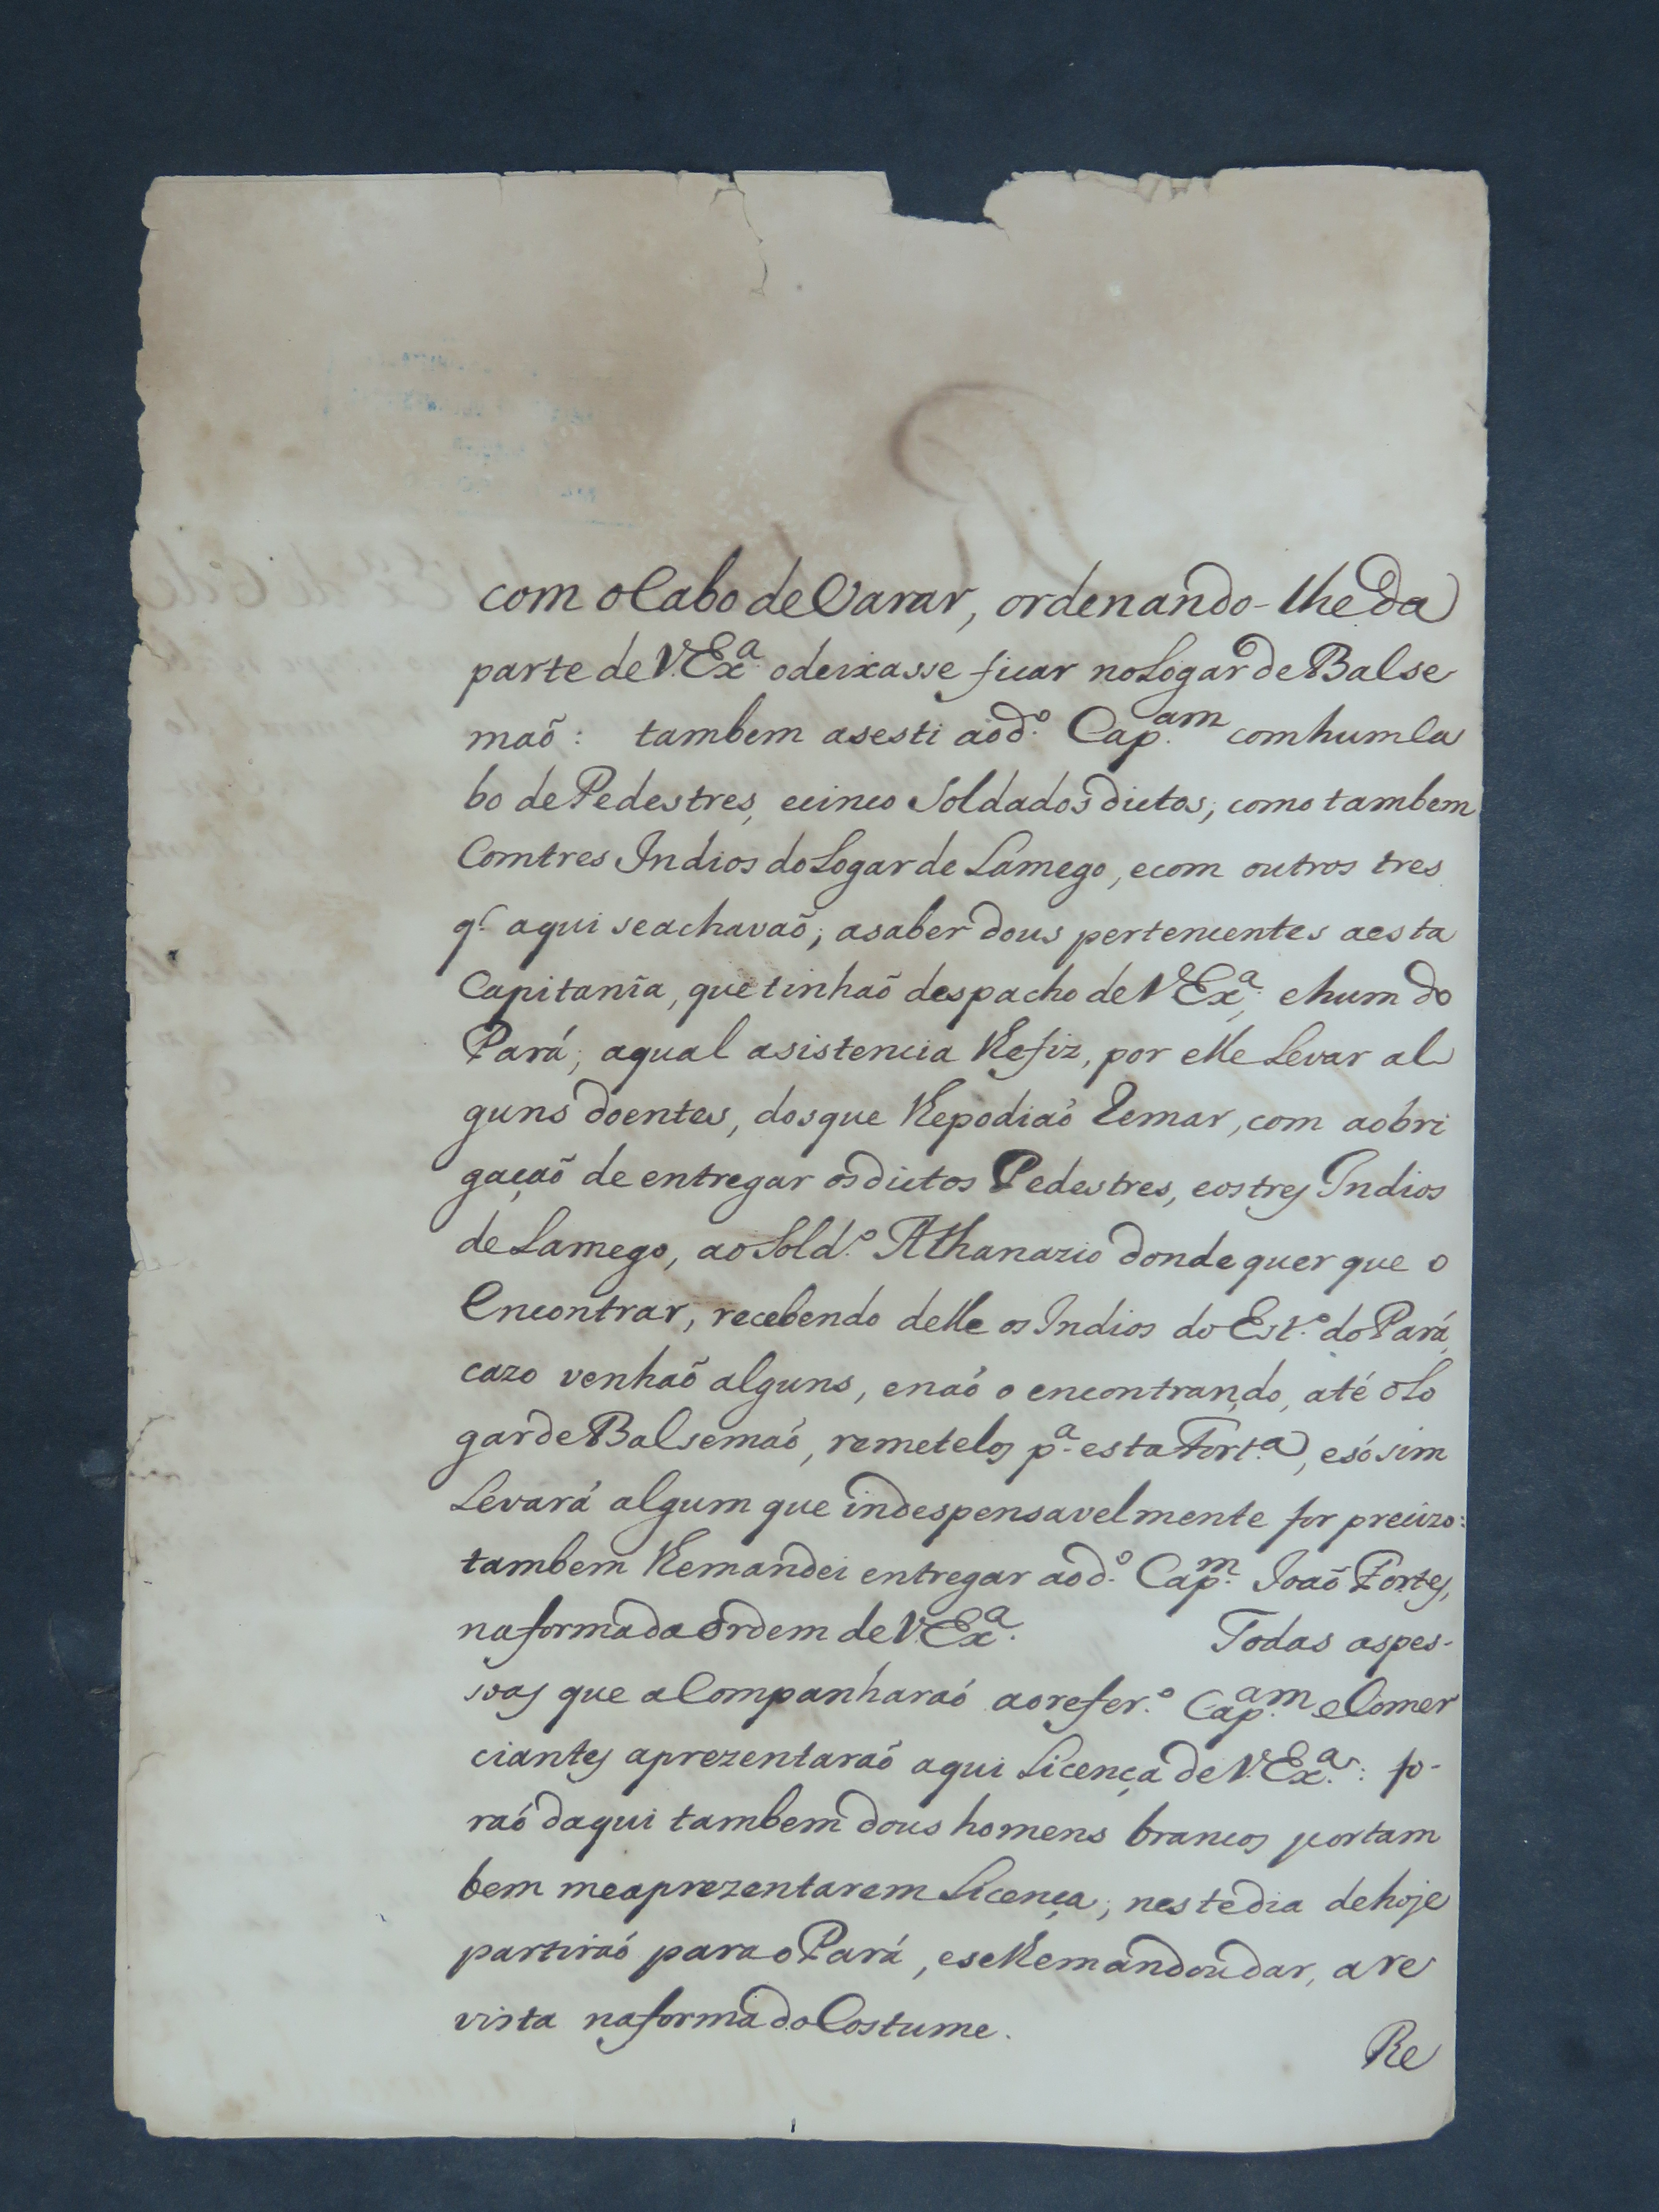 com o Cabo de Varar, ordenando-lhe da
parte de V.Exª. o deixasse ficar no Logar de Balse
maõ: tambem asesti ao d.º Cap.am com hum Ca
bo de Pedestres, e cinco Soldados dictos, como tambem
Com tres Indios do Logar de Lamego, e com outros tres
q.' aqui se achavaõ, a saber dous pertencentes a esta
Capitania, que tinhaõ despacho de V.Exª., e hum do
Pará, a qual asistencia lhe fiz, por elle Levar al
guns doentes, dos que lhe podiaõ remar, com a obri
gaçaõ de entregar os dictos Pedestres, e os tres Indios
de Lamego, ao Sold.º Athanazio donde quer que o
Encontrar, recebendo delle os Indios do Est.º do Pará,
cazo venhaõ alguns, e naõ o encontrando, até o Lo
gar de Balsemaõ, remetelos p.ª esta Fort.ª, e só sim
Levará algum que indespensavelmente for precizo:
tambem lhe mandei entregar ao d.º Cap.m Joaõ Fortes,
na forma da Ordem de V.Exª. Todas as pes-
soas que aCompanharaõ ao refer.º Cap.am e Comer
ciantes aprezentaraõ aqui Licença de V.Exª.: fo-
raõ daqui tambem dous homens brancos por tam
bem me aprezentarem Licença; neste dia de hoje
partiraõ para o Pará, e se lhe mandou dar, a re
vista na forma do Costume.
Re